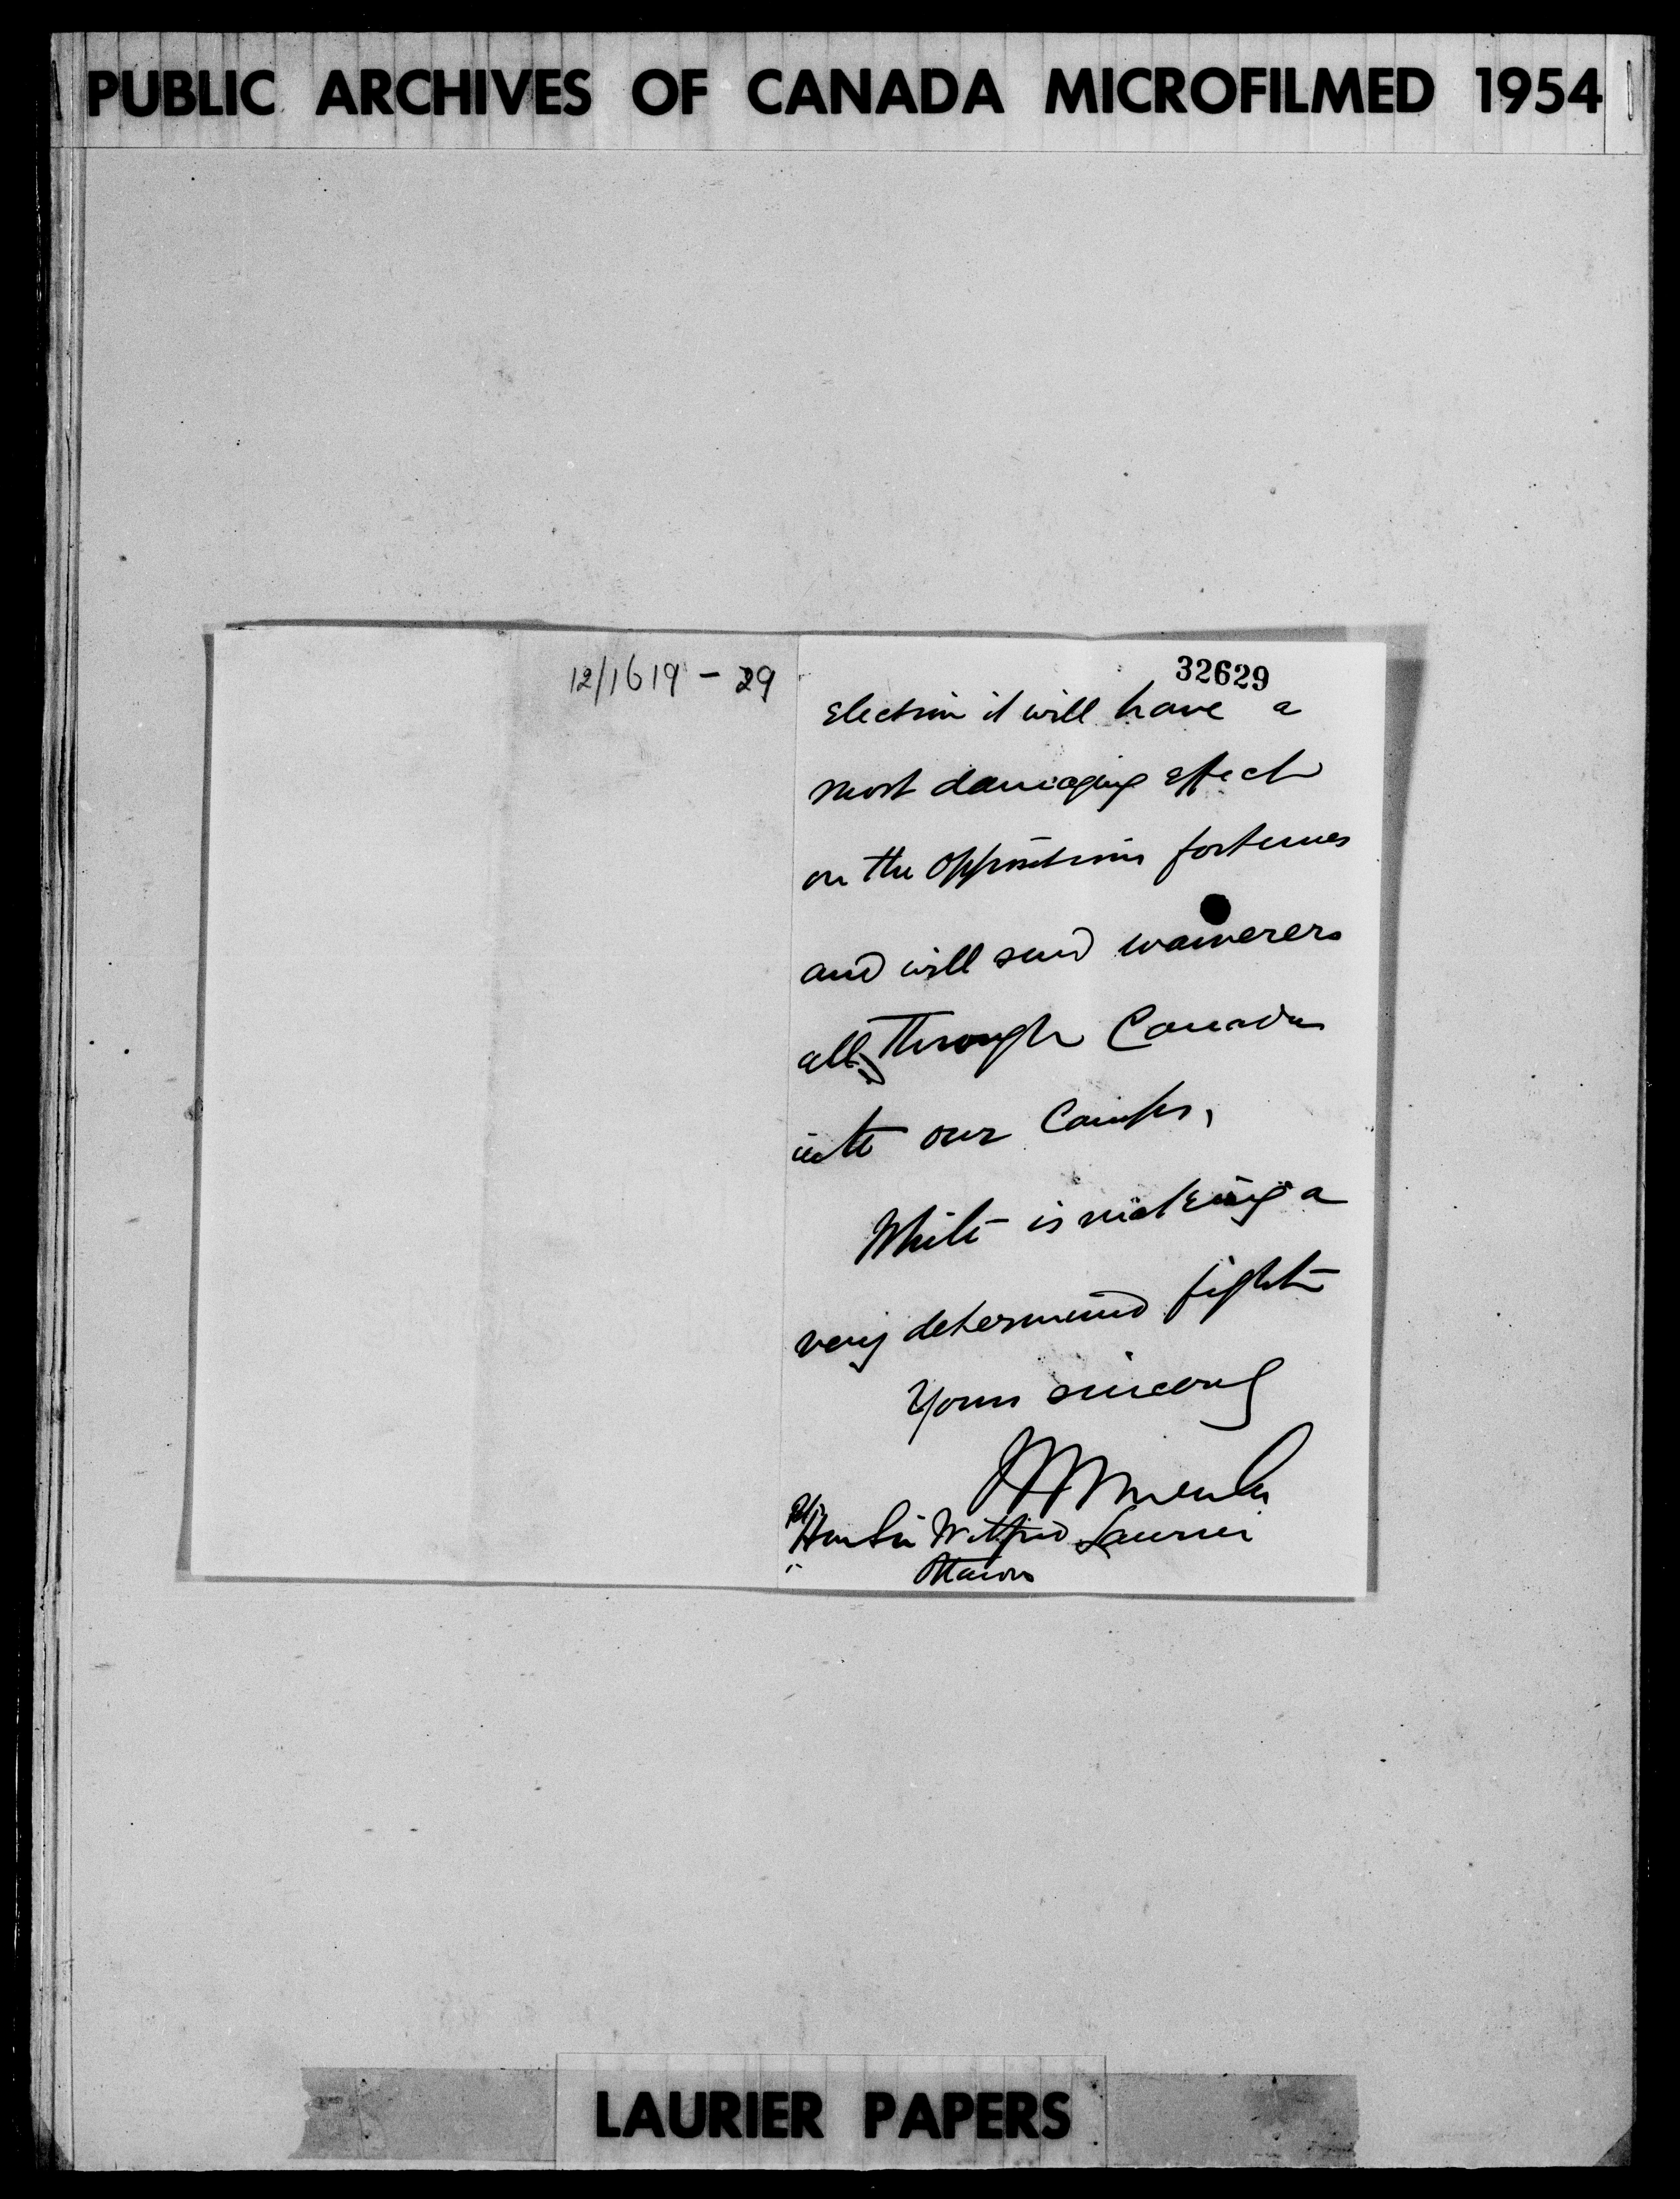 PUBLIC ARCHIVES OF CANADA MICROFILMED 1954
12/1619 - 29
32629
election it will have a
most damaging effect
on the Opposition fortunes
and will send waiverers
all through Canada
into our Camps,
White is making a
very determined fight
Yours sincerely
Hon Sir Wilfrid Laurier
Ottawa
LAURIER PAPERS